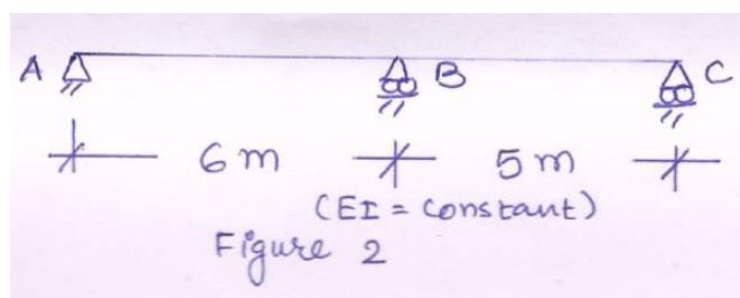 A B C
6m 5m
(EI = constant)
Figure 2